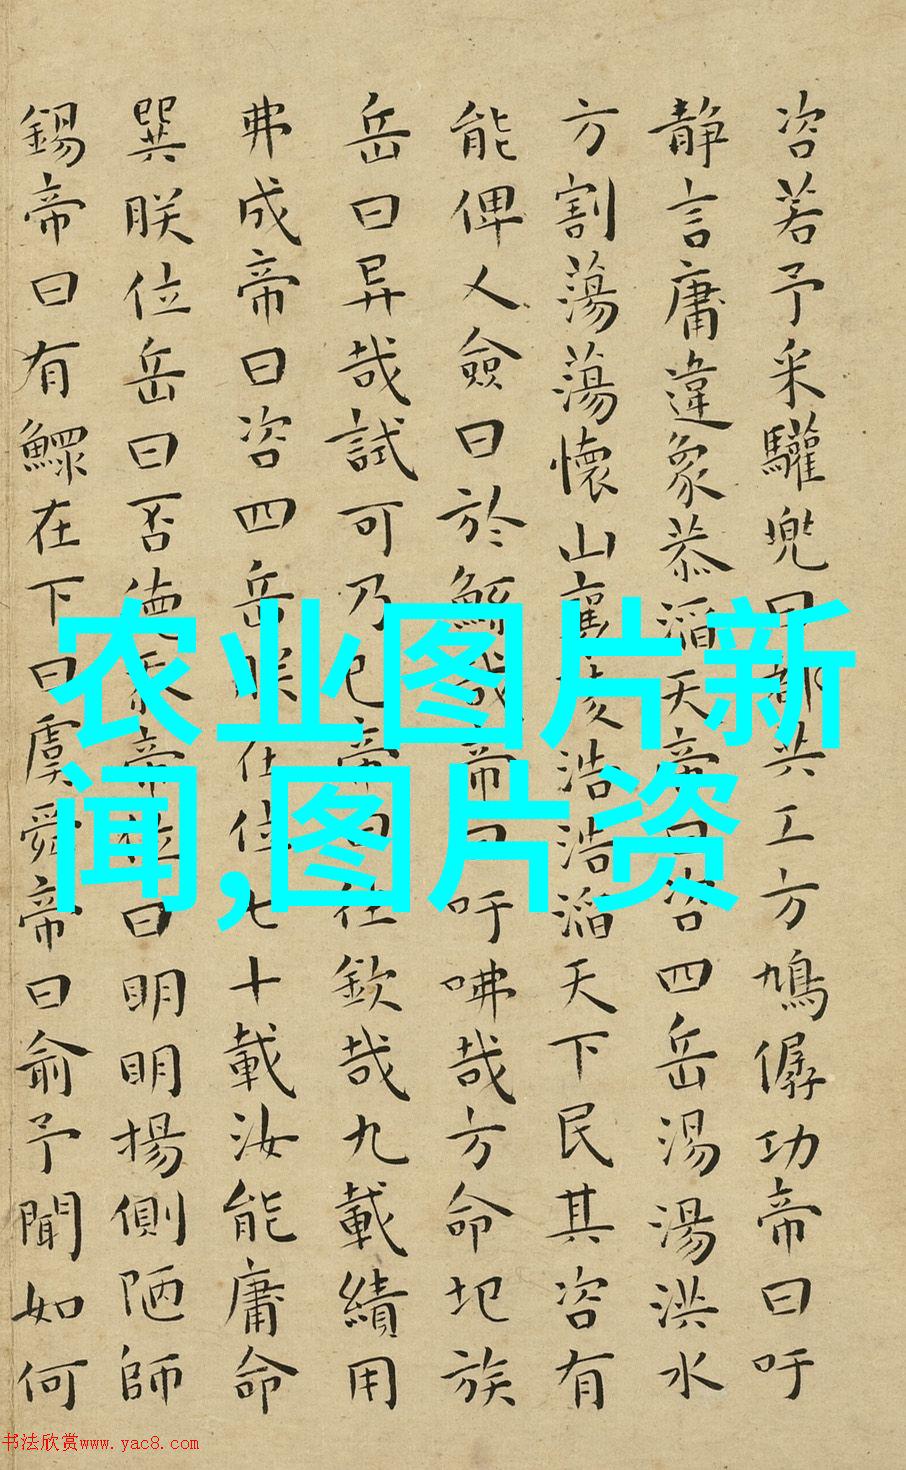 咨若予采驩兜曰都共工方鳩僝功帝曰吁
静言庸違象恭滔天帝曰咨四岳湯湯洪水
方割蕩蕩懷山襄浩浩滔天下民其咨有
能俾人僉曰於鯀哉帝曰吁咈哉方命圮族
岳曰异哉試可乃已帝曰往欽哉九載績用
弗成帝曰咨四岳朕在位七十載汝能庸命
巽朕位岳曰否德忝帝位曰明明揚側陋師
錫帝曰有鰥在下曰虞舜帝曰俞予聞如何
农业图片新
闻,图片资
书法欣赏www.yac8.com